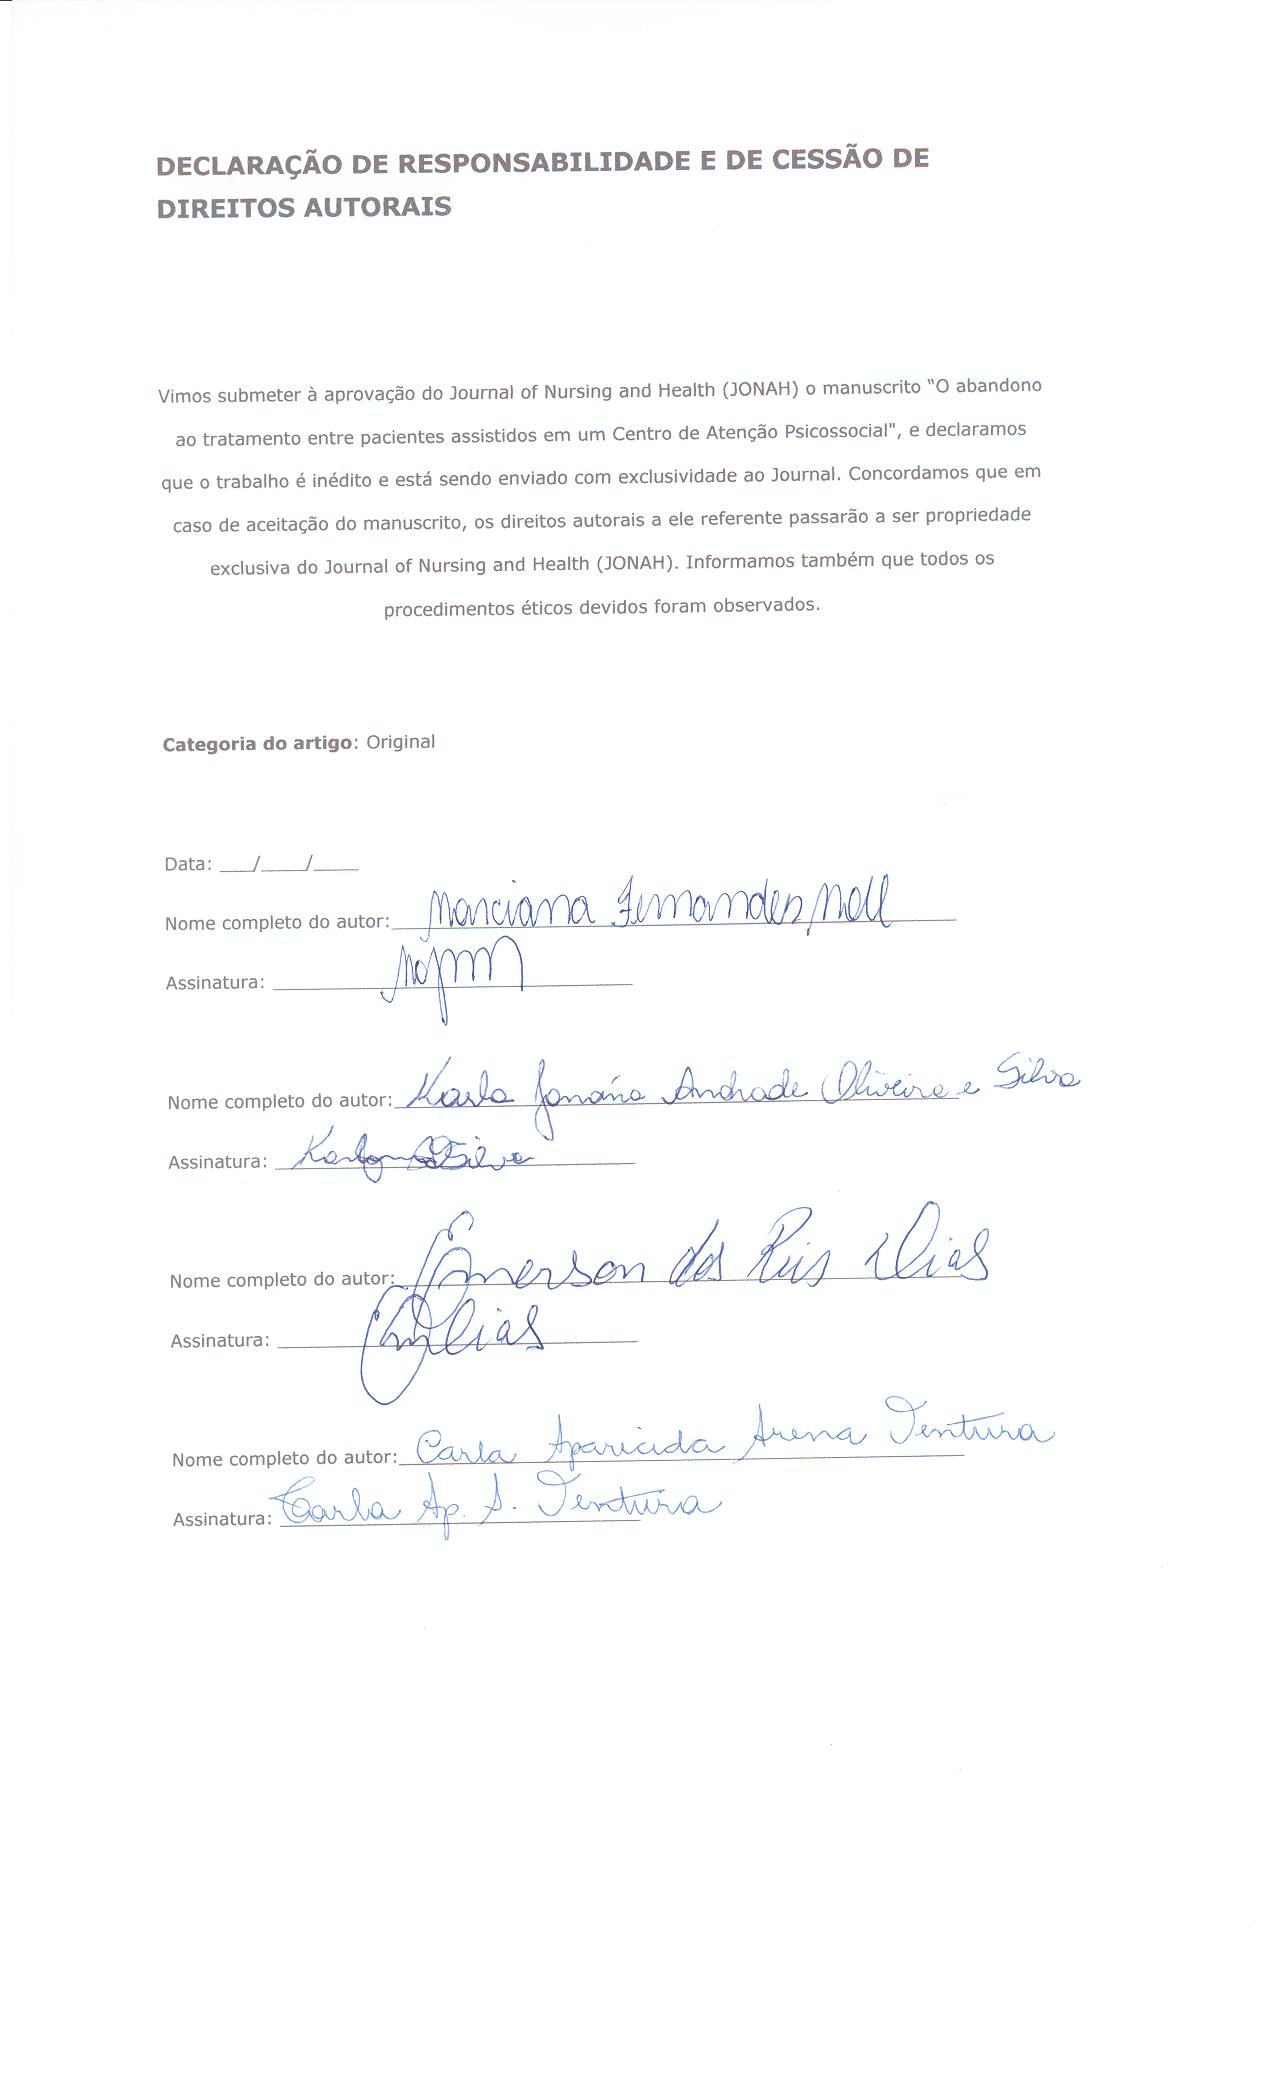 DECLARAÇÃO DE RESPONSABILIDADE E DE CESSÃO DE
DIREITOS AUTORAIS
Vimos submeter à aprovação do Journal of Nursing and Health (JONAH) o manuscrito “O abandono
ao tratamento entre pacientes assistidos em um Centro de Atenção Psicossocial", e declaramos
que o trabalho é inédito e está sendo enviado com exclusividade ao Journal. Concordamos que em
caso de aceitação do manuscrito, os direitos autorais a ele referente passarão a ser propriedade
exclusiva do Journal of Nursing and Health (JONAH). Informamos também que todos os
procedimentos éticos devidos foram observados.
Categoria do artigo: Original
Data: ___/____/____
Nome completo do autor: Marciana Fernandes Moll
Assinatura:
Nome completo do autor: Karla Janaína Andrade Oliveira e Silva
Assinatura:
Nome completo do autor: Emerson dos Reis Dias
Assinatura:
Nome completo do autor: Carla Aparecida Arena Ventura
Assinatura: Carla Ap. A. Ventura